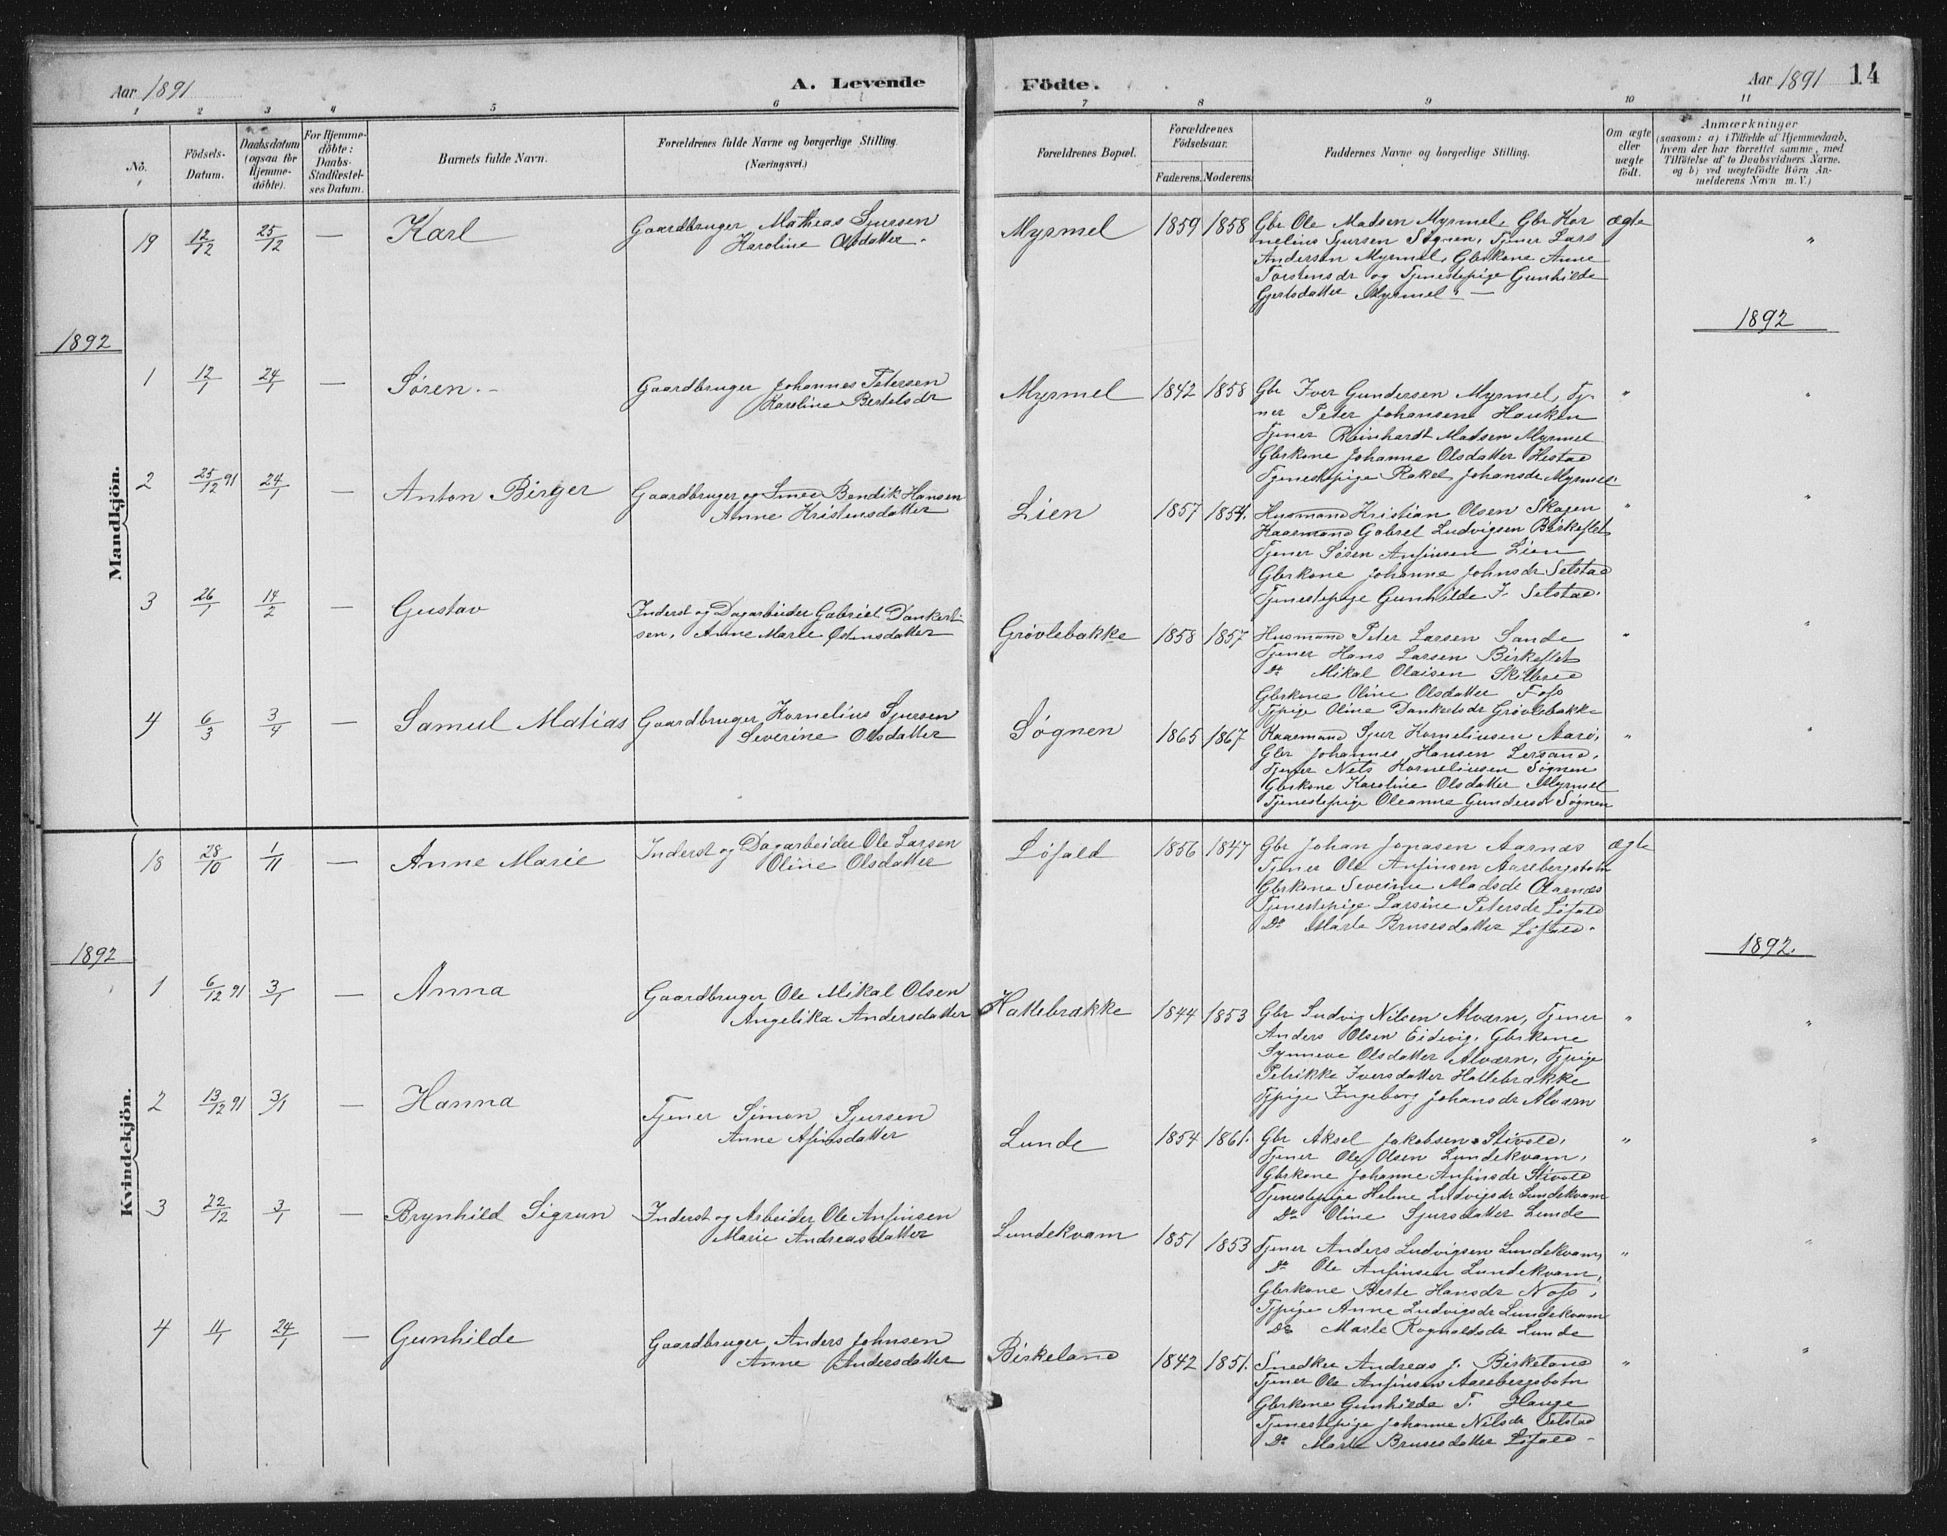 Aar 1891
A. Levende
Födte.
Aar 1891
14
1 2 3 4 5 6 7 8 9 10 11
No.
Födsels-
Datum.
Daabsdatum
(ogsaa for
Hjemme-
döbte).
For Hjemme-
döbte:
Daabs-
Stadfæstel-
ses Datum.
Barnets fulde Navn.
Forældrenes fulde Navne og borgerlige Stilling.
(Næringsvei.)
Forældrenes Bopæl.
Forældrenes
Födselsaar.
Faderens. Moderens.
Faddernes Navne og borgerlige Stilling.
Om ægte
eller
uægte
födt.
Anmærkninger
(saasom: a) i Tilfælde af Hjemmedaab,
hvem der har forrettet samme, med
Tilföielse af to Daabsvidners Navne.
og b) ved uægtefödte Börn An-
melderens Navn m. V.)
Mandkjön.
19 12/12 25/12 — Karl
Gaardbruger Mathias Sjursen
Karoline Olsdatter.
Myrmel 1859 1858
Gbr Ole Madsen Myrmel, Gbr Kor
nelius Sjursen Søgnen, Tjener Lars
Andersen Myrmel, Gbrkone Anne
Torstensdr og Tjenestepige Gunhilde
Gjertsdatter Myrmel. —
ægte "
1892
1892
1 12/1 24/1 — Søren. —
Gaardbruger Johannes Petersen
Karoline Bertelsdr
Myrmel 1842 1858
Gbr Iver Gundersen Myrmel, Tj-
ner Peter Johansen Hauken
Tjener Reinhardt Madsen Myrmel
Gbrkone Johanne Olsdatter Hestad
Tjenestepige Rakel Johansdr Myrmel.
" "
2 25/12 91 24/1 — Anton Birger
Gaardbruger og Smed Bendik Hansen
Anne Kristensdatter
Lien 1857 1854.
Husmand Kristian Olsen Skagen
Kaarmand Gabriel Ludvigsen Birkeflet
Tjener Søren Anfinsen Lien
Gbrkone Johanne Johnsdr Selstad
Tjenestepige Gunhilde J. Selstad.
" "
3 26/1 14/2 — Gustav
Inderst og Dagarbeider Gabriel Dankert-
sen, Anne Marie Østensdatter
Grøvlebakke 1858 1857
Husmand Peter Larsen Sande
Tjener Hans Larsen Birkeflet
Do Mikal Olaisen Skilbred
Gbrkone Oline Olsdatter Foss
Tjpige Oline Dankertsdr Grøvlebakke
" "
4 6/3 3/4 — Samuel Matias
Gaardbruger Kornelius Sjursen
Severine Olsdatter
Søgnen 1865 1867
Kaarmand Sjur Korneliussen Aarø,
Gbr Johannes Hansen Lersand,
Tjener Nils Korneliussen Søgnen
Gbrkone Karoline Olsdatter Myrmel
Tjenestepige Oleanna Gundersdr Søgnen
" "
Kvindekjön.
18 28/10 1/11 — Anne Marie
Inderst og Dagarbeider Ole Larsen
Oline Olsdatter
Løfald 1856 1847
Gbr Johan Jonasen Aarnæs
Tjener Ole Anfinsen Aarebergsbotn
Gbrkone Severine Madsdr Aarnæs
Tjenestepige Larsine Petersdr Løfald
Do Marte Brusesdatter Løfald.
ægte
1892
1892
1 6/12 91 3/1 — Anna
Gaardbruger Ole Mikal Olsen
Angelika Andersdatter
Hattebrække 1844 1853
Gbr Ludvig Nilsen Alværn, Tjener
Anders Olsen Eidevig, Gbrkone
Synneve Olsdatter Alværn, Tjpige
Petrikke Iversdatter Hattebrække
Tjpige Ingeborg Johansdr Alværn
" "
2 13/12 91 3/1 — Hanna
Tjener Simon Sjursen
Anne Afinsdatter
Lunde 1854 1861.
Gbr Aksel Jakobsen Stivold,
Tjener Ole Olsen Lundekvam,
Gbrkone Johanne Anfinsdr Stivold
Tjenestepige Heline Ludvigsdr Lundekvam
Do Oline Sjursdatter Lunde
" "
3 22/12 3/1 — Brynhild Sigrun
Inderst og Arbeider Ole Anfinsen
Marie Andreasdatter
Lundekvam 1851 1853
Tjener Anders Ludvigsen Lundekvam,
Do Ole Anfinsen Lundekvam,
Gbrkone Berte Hansdr Nøss,
Tjpige Anne Ludvigsdr Lundekvam
Do Marte Rognaldsdr Lunde
" "
4 11/1 24/1 — Gunhilde
Gaardbruger Anders Johnsen
Anne Andersdatter
Birkeland 1842 1851.
Snedker Andreas J. Birkeland
Tjener Ole Anfinsen Aarebergsbotn
Gbrkone Gunhilde T. Hauge
Tjenestepige Johanne Nilsdr Selstad
Do Marte Brusesdatter Løfald.
" "